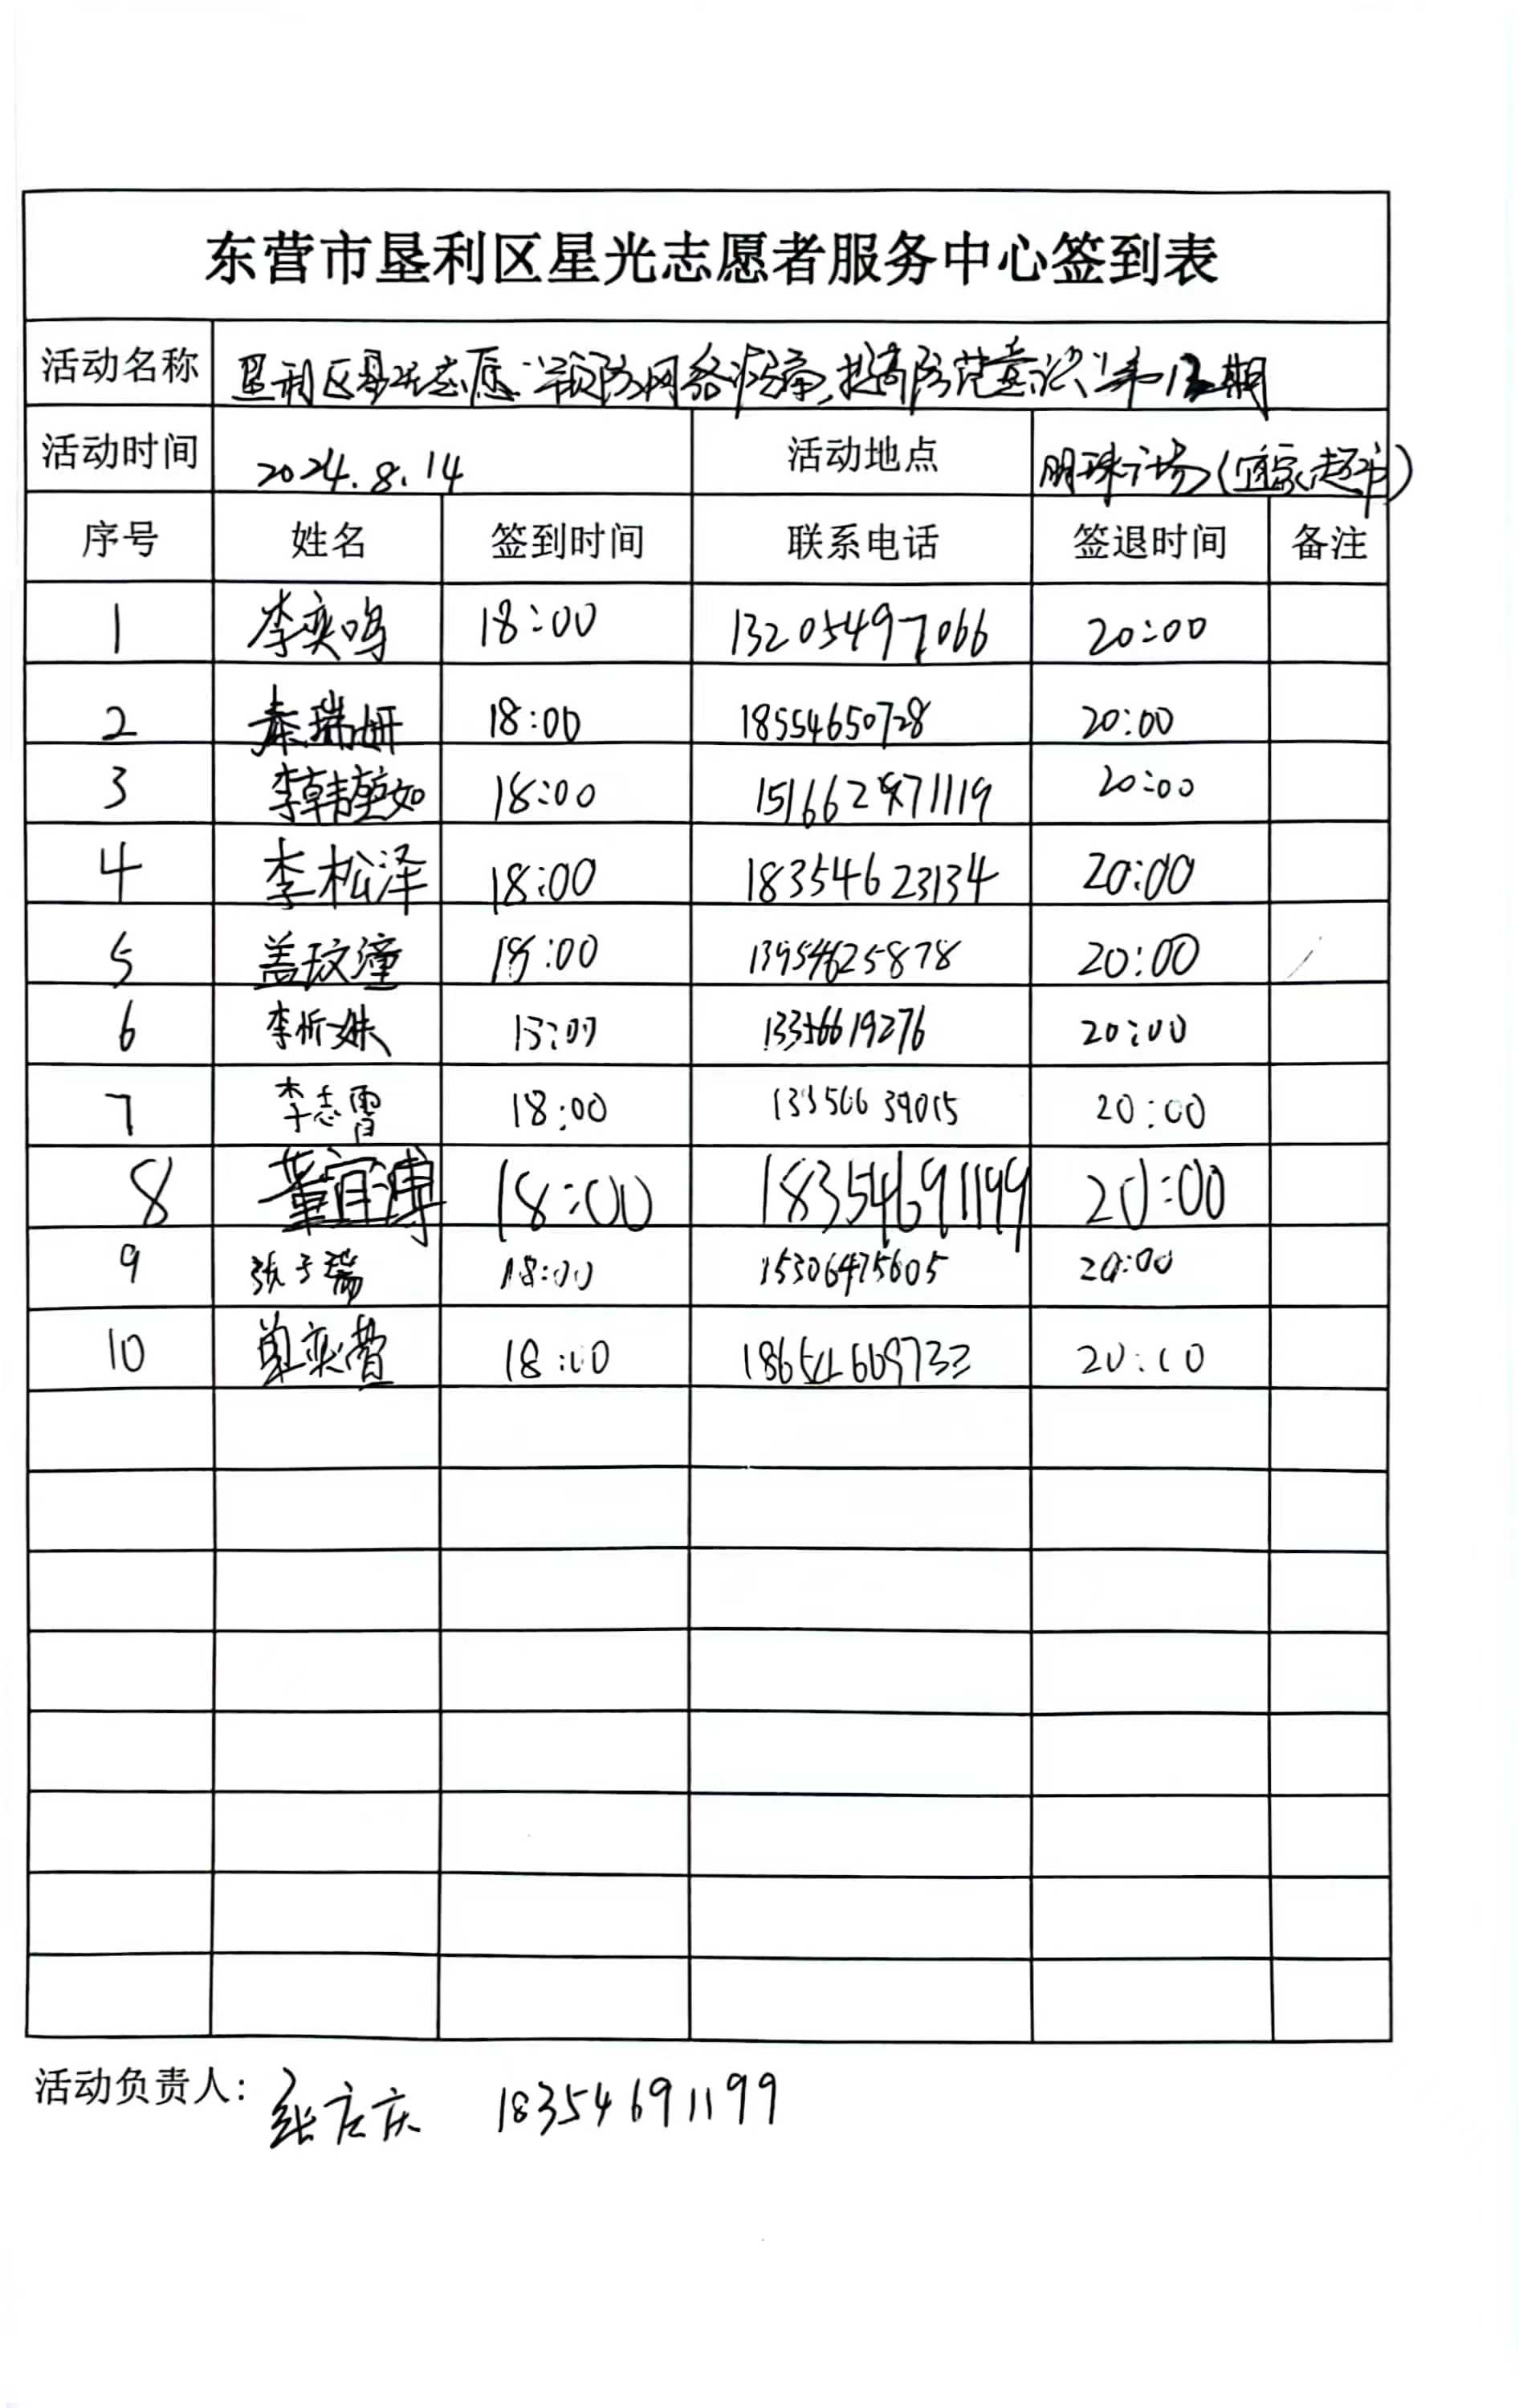 东营市垦利区星光志愿者服务中心签到表
活动名称 垦利区星光志愿“预防网络诈骗,提高防范意识”第12期
活动时间 2024.8.14 活动地点 明珠广场(宜家超市)
序号 姓名 签到时间 联系电话 签退时间 备注
1 李奕鸣 18:00 13205497066 20:00
2 秦瑞妍 18:00 18554650728 20:00
3 李韩堃如 18:00 20:00
4 李松泽 18:00 18354623134 20:00
5 盖玟潼 18:00 13954625878 20:00
6 李忻姝 20:00
7 李志雷 18:00 13356639015 20:00
8 董宜溥 18:00 18354691199 20:00
9 张子瑞 18:00 15306475605 20:00
10 18:00 20:00
活动负责人: 张庆庆 18354691199